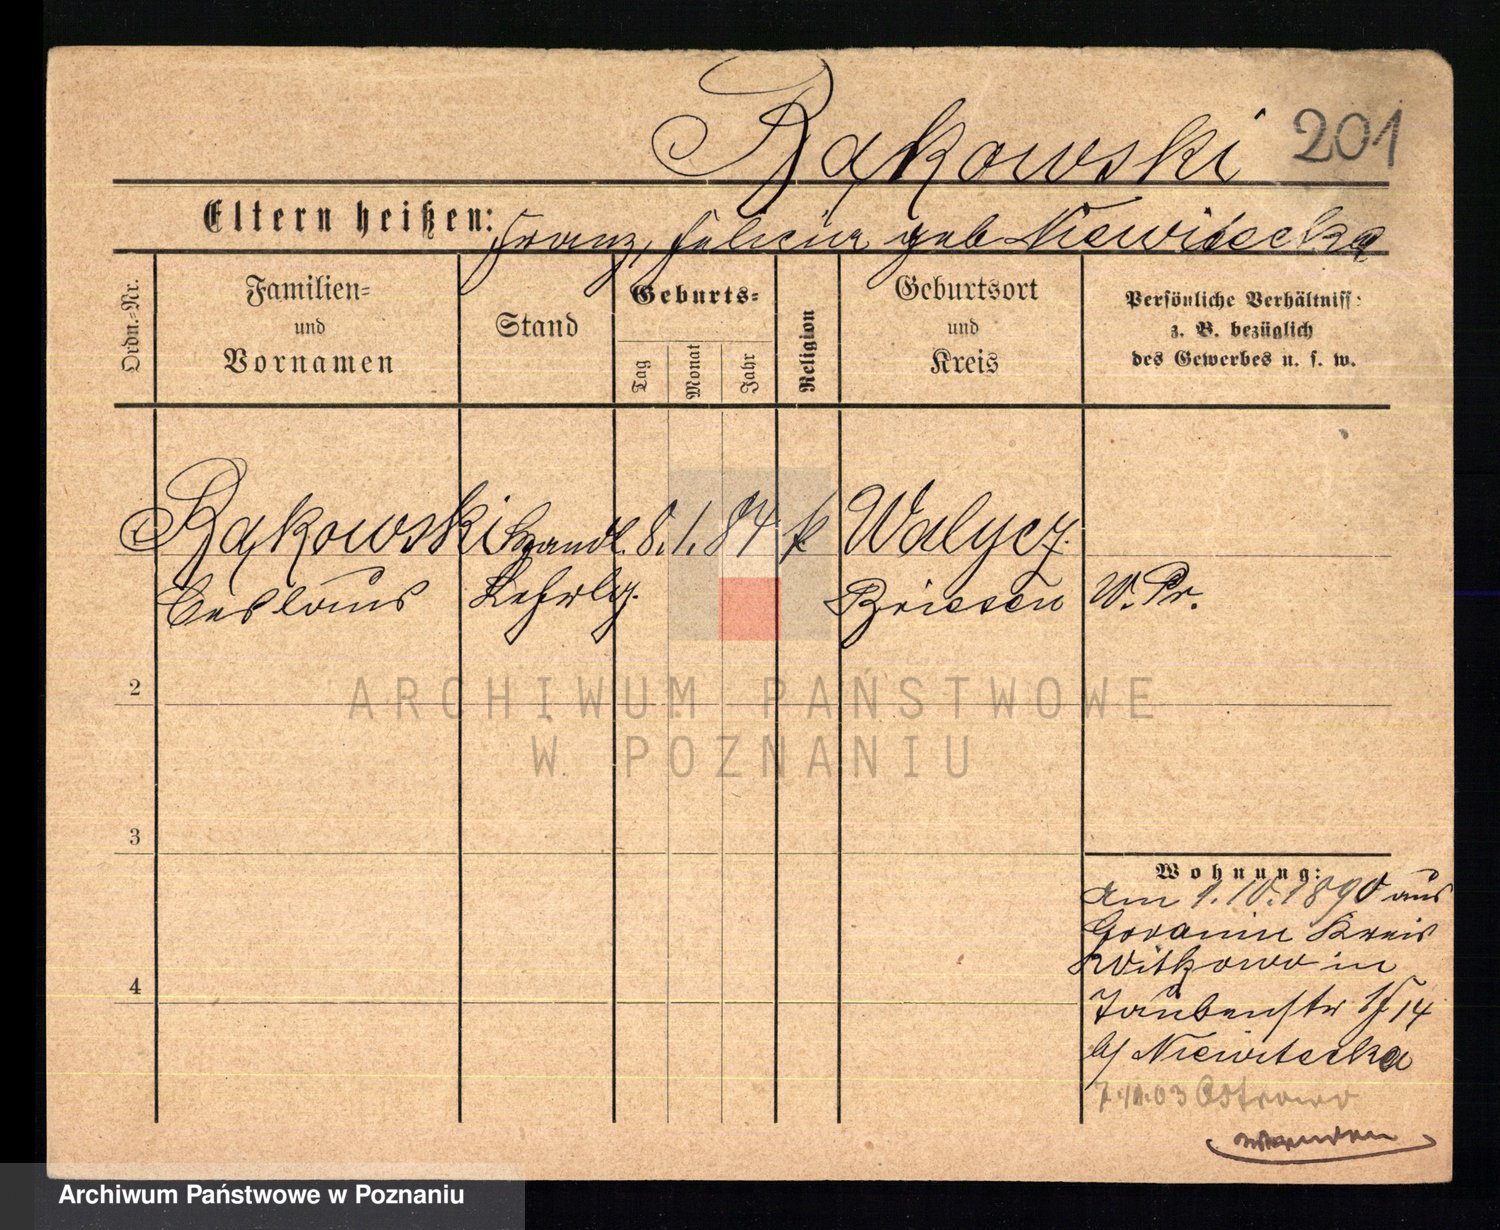 Rąkowski 201
Eltern heißen: Franz, Felicia geb Niewitecka
Ordn.-Nr.
Familien-
und
Vornamen
Stand
Geburts-
Tag
Monat
Jahr
Religion
Geburtsort
und
Kreis
Persönliche Verhältniss:
z. B. bezüglich
des Gewerbes u. s. w.
Rąkowski Handl. 8. 1. 84 k Walycz.
Ceslaus Lehrlg. Briesen W. Pr.
2
ARCHIWUM PAŃSTWOWE
W POZNANIU
3
Wohnung:
am 1.10.1890 aus
Goranin Kreis
Witkowo in
Taubenstr 14
b/ Niewitecka
7.11.03 Ostrowo
4
Archiwum Państwowe w Poznaniu